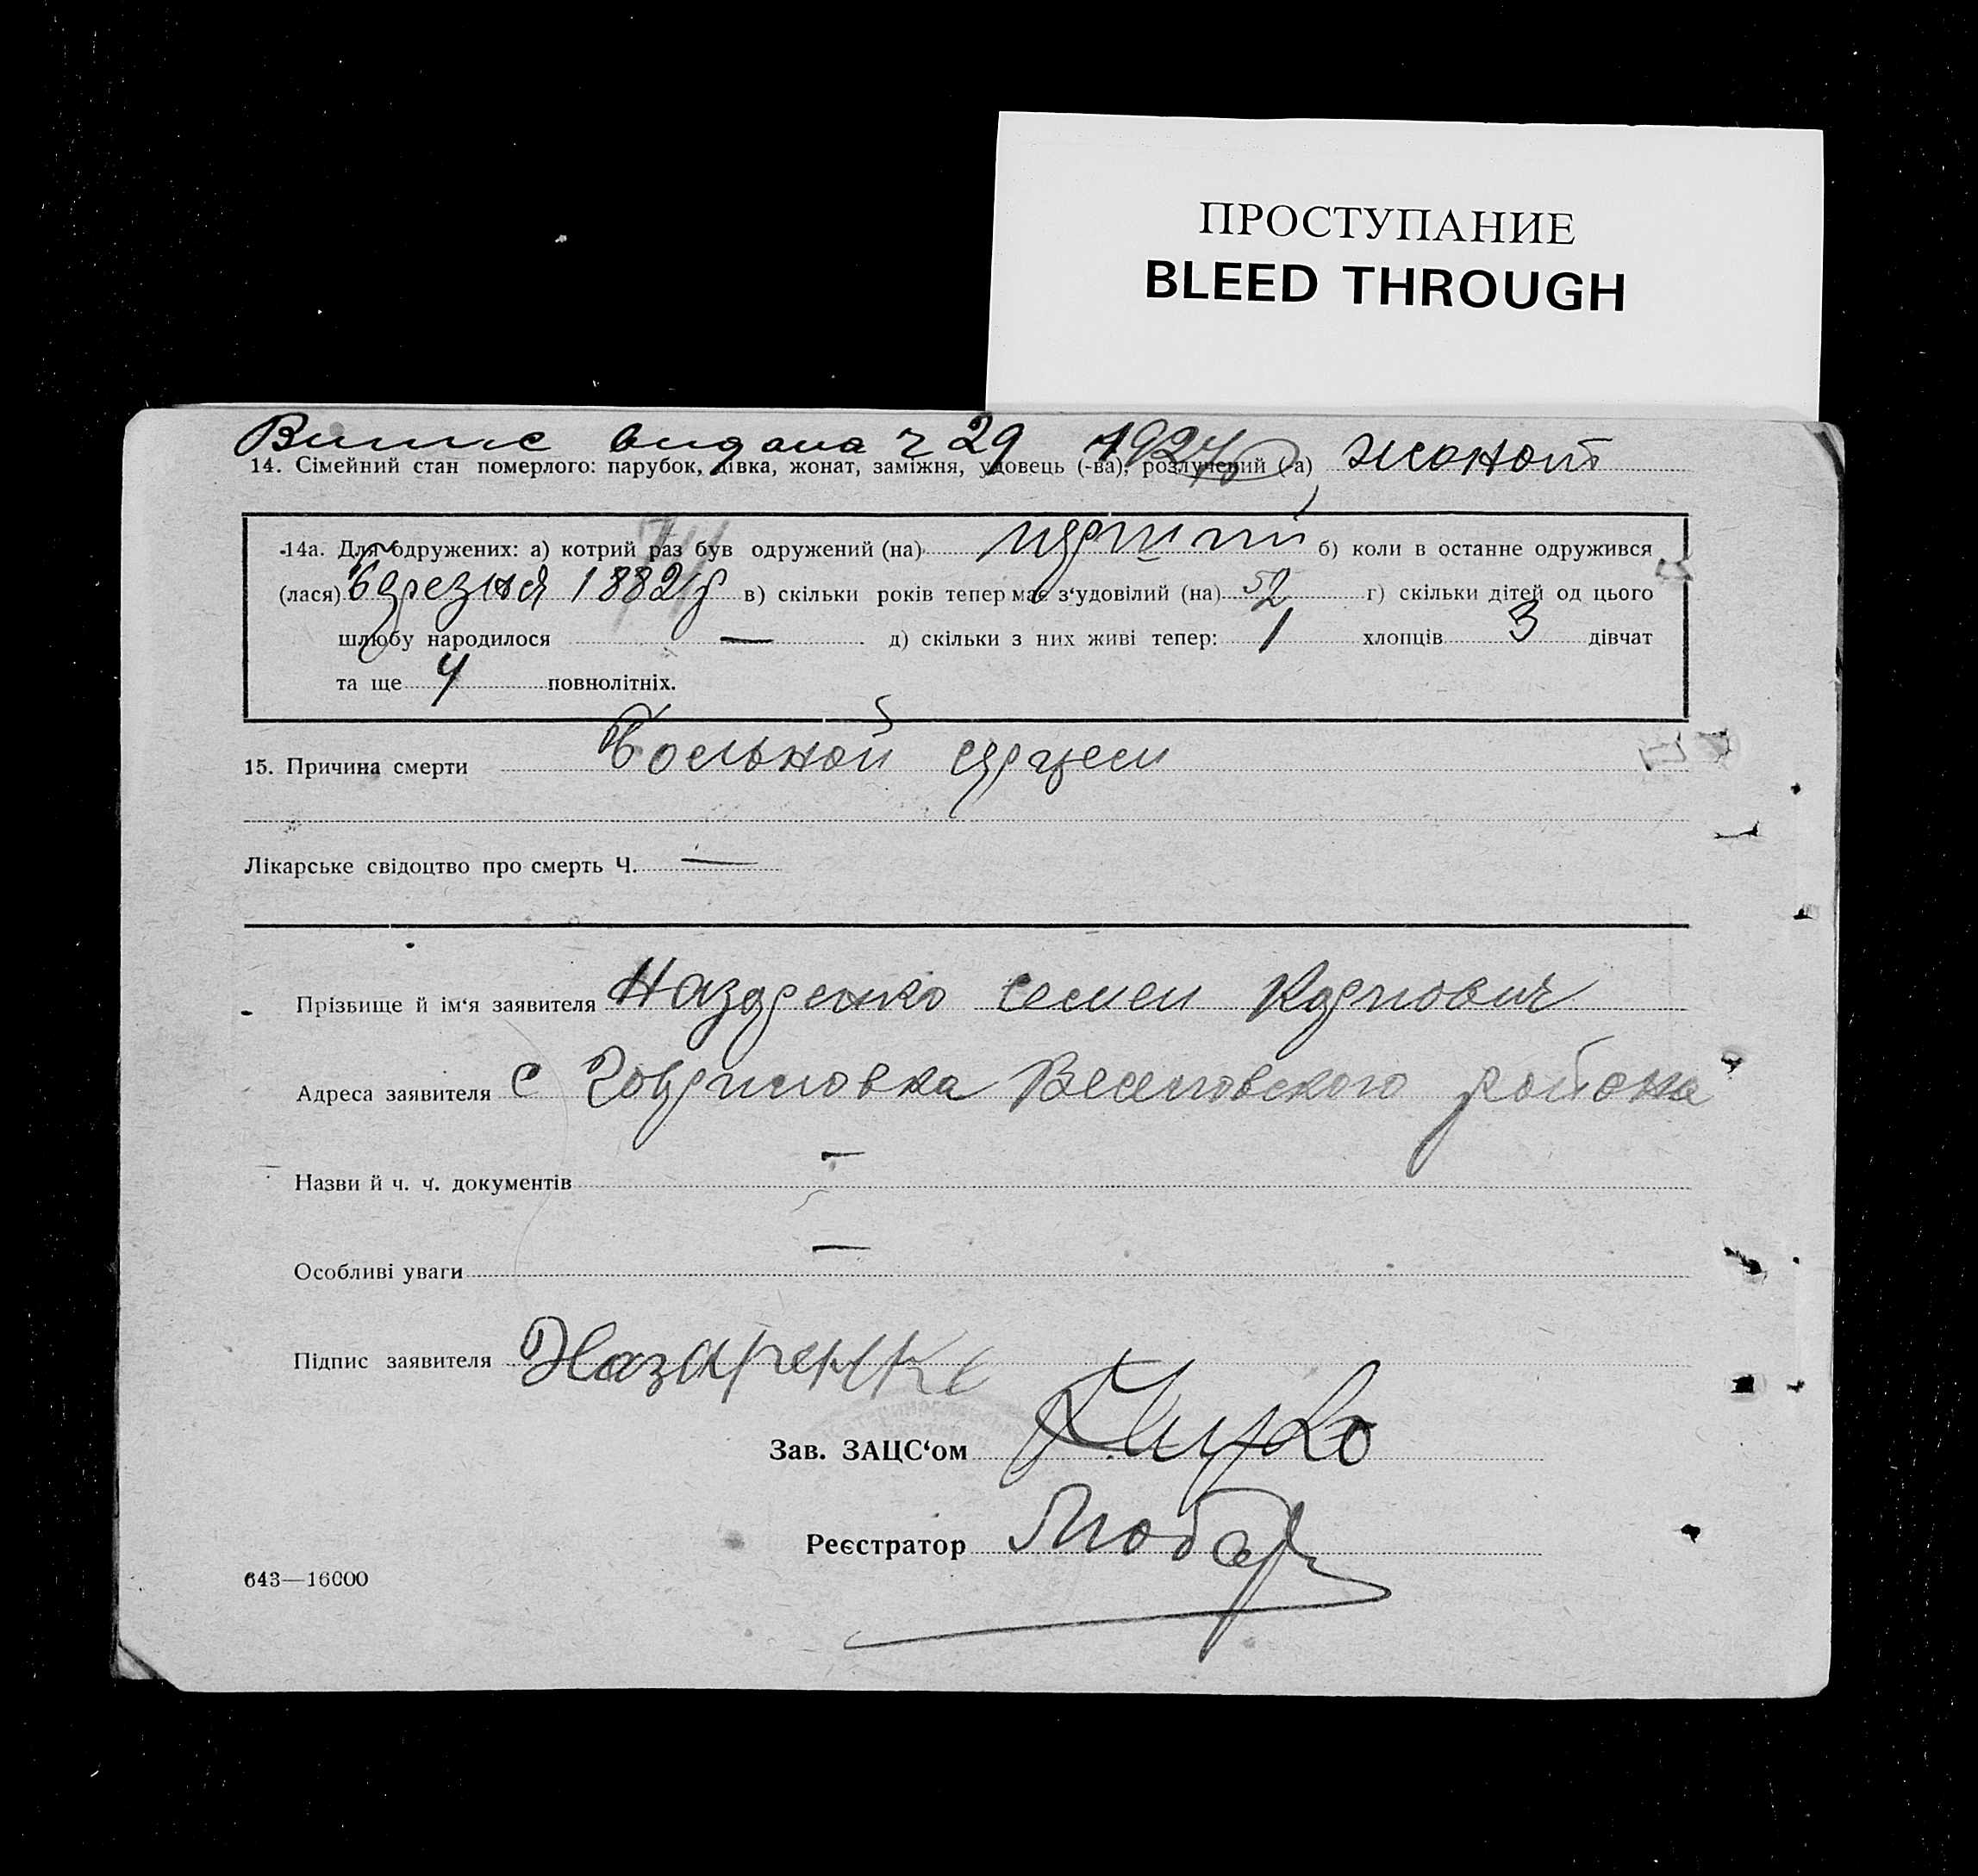 ПРОСТУПАНИЕ
BLEED THROUGH
Випис видана ч 29 192
14. Сімейний стан померлого: парубок, дівка, жонат, заміжня, удовець (-ва), розлучений (-а) жонат
14а. Для одружених: а) котрий раз був одружений (на) перший б) коли в останне одружився
(лася) березня 1882 р в) скільки років тепер має з'удовілий (на) 52 г) скільки дітей од цього
шлюбу народилося — д) скільки з них живі тепер: 1 хлопців 3 дівчат
та ще 4 повнолітніх.
15. Причина смерти Больной сердцем
Лікарське свідоцтво про смерть Ч. —
Прізвище й ім'я заявителя Назаренко Семен Карпович
Адреса заявителя с Веселовского района
Назви й ч. ч. документів —
Особливі уваги —
Підпис заявителя Назаренко
Зав. ЗАЦС'ом
Реєстратор
643—16000